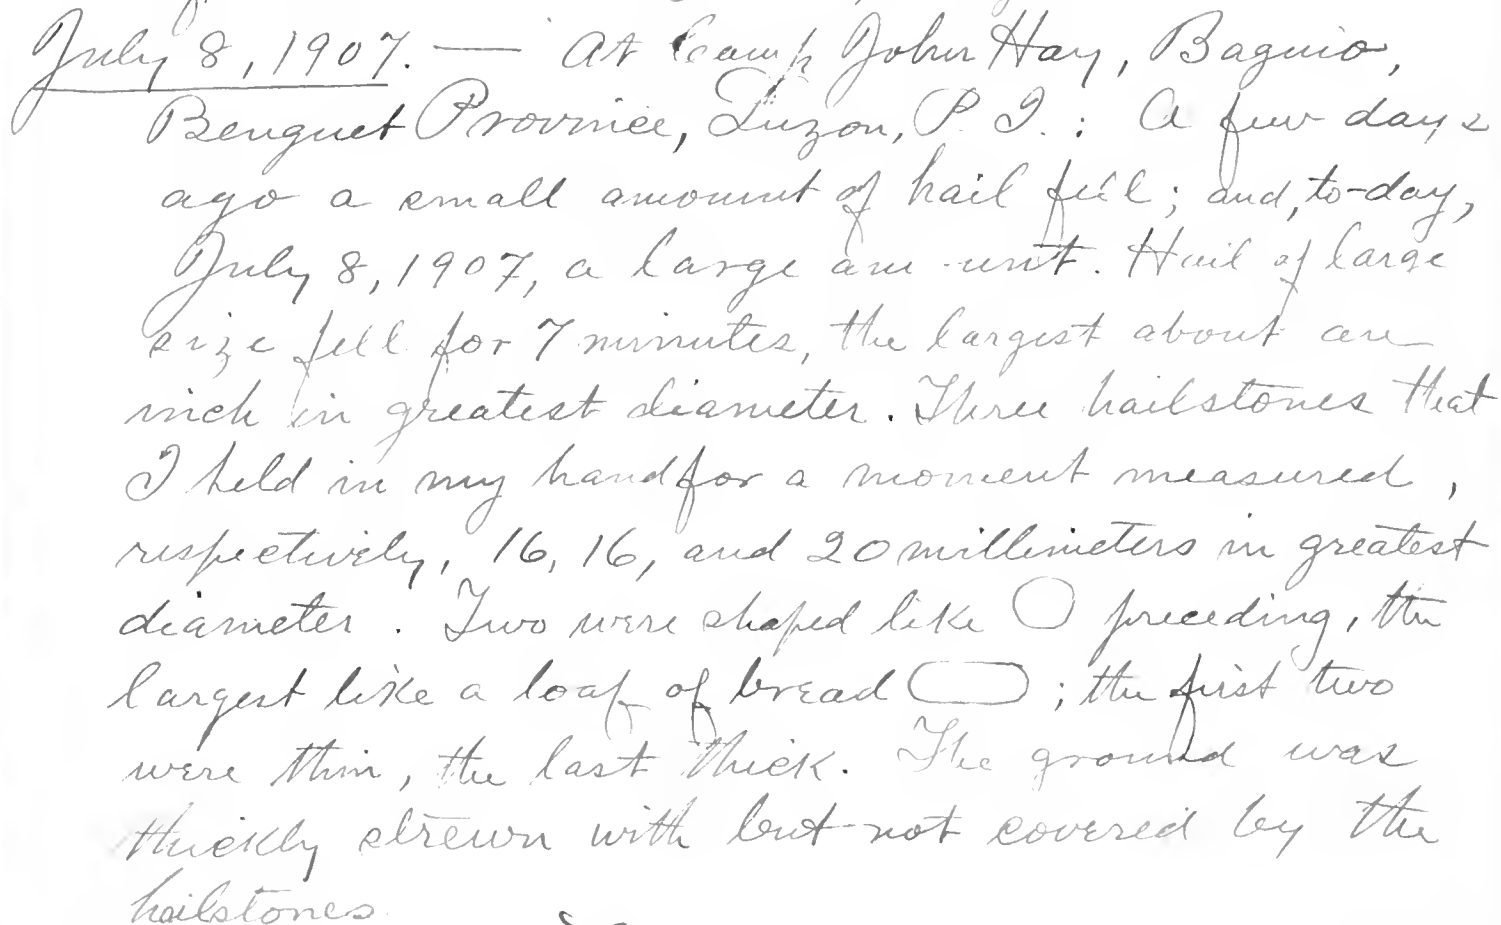 July 8, 1907. — At Camp John Hay, Baguio,
Benguet Province, Luzon, P. I. : A few days
ago a small amount of hail fell; and, to-day,
July 8, 1907, a large amount. Hail of large
size fell for 7 minutes, the largest about an
inch in greatest diameter. Three hailstones that
I held in my hand for a moment measured,
respectively, 16, 16, and 20 millimeters in greatest
diameter. Two were shaped like preceding, the
largest like a loaf of bread ; the first two
were thin, the last thick. The ground was
thickly strewn with but not covered by the
hailstones